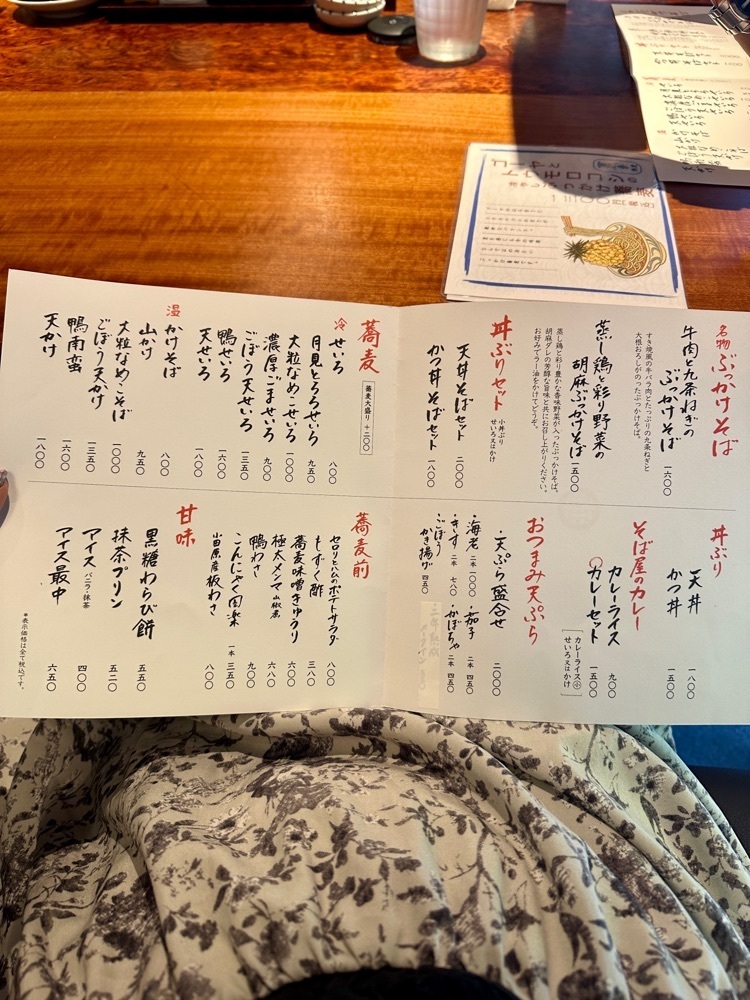 名物 ぶっかけそば
牛肉と九条ねぎの
ぶっかけそば 一六〇〇
すき焼風の牛バラ肉とたっぷりの九条ねぎと
大根おろしがのったぶっかけそば。
蒸し鶏と彩り野菜の
胡麻ぶっかけそば 一五〇〇
蒸し鶏と彩り豊かな香味野菜が入ったぶっかけそば。
胡麻ダレの芳醇な旨味と共にお召し上がりください。
お好みでラー油をかけてどうぞ。
丼ぶりセット 小丼ぶり
せいろ又はかけ
天丼そばセット 二〇〇〇
かつ丼そばセット 一八〇〇
蕎麦 蕎麦大盛り +二〇〇
冷 せいろ 八〇〇
月見とろろせいろ 九五〇
大粒なめこせいろ 一〇〇〇
濃厚ごませいろ 九〇〇
ごぼう天せいろ 一三五〇
鴨せいろ 一六〇〇
天せいろ 一八〇〇
温 かけそば 八〇〇
山かけ 九五〇
大粒なめこそば 一〇〇〇
ごぼう天かけ 一三五〇
鴨南蛮 一六〇〇
天かけ 一八〇〇
丼ぶり
天丼 一八〇〇
かつ丼 一五〇〇
そば屋のカレー
カレーライス 九〇〇
カレーセット 一五〇〇
カレーライス小
せいろ又はかけ
おつまみ天ぷら
・天ぷら盛合せ 二〇〇〇
・海老 二本 一〇〇〇 ・茄子 二本 四五〇
・きす 二本 七八〇 ・かぼちゃ 二本 四五〇
・ごぼう
かき揚げ 四五〇
蕎麦前
セロリとハムのポテトサラダ 八〇〇
もずく酢 三八〇
蕎麦味噌きゅうり 六〇〇
極太メンマ 山椒煮 六八〇
鴨わさ 九〇〇
こんにゃく田楽 一本 三五〇
小田原産板わさ 八〇〇
甘味
黒糖わらび餅 五五〇
抹茶プリン 五二〇
アイス バニラ・抹茶 四〇〇
アイス最中 六五〇
※表示価格は全て税込です。
ゴーヤと
トウモロコシの
冷やしぶっかけ蕎麦
一三〇〇円(税込)